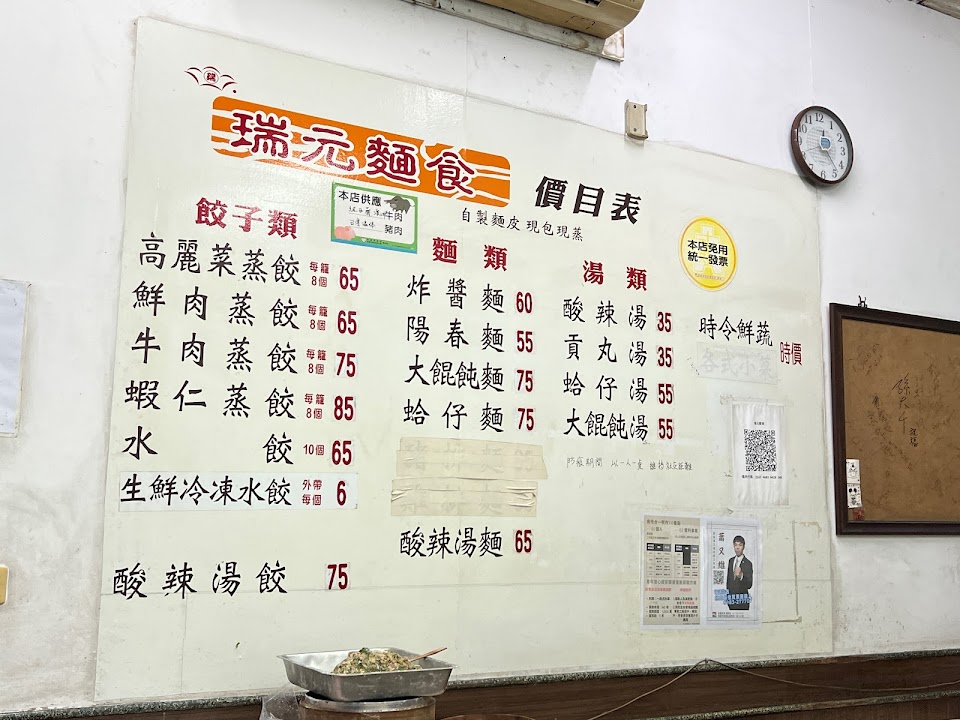 瑞
瑞元麵食
價目表
自製麵皮 現包現蒸
本店供應
牛肉
豬肉
本店免用
統一發票
餃子類
高麗菜蒸餃 每籠8個 65
鮮肉蒸餃 每籠8個 65
牛肉蒸餃 每籠8個 75
蝦仁蒸餃 每籠8個 85
水餃 10個 65
生鮮冷凍水餃 外帶每個 6
酸辣湯餃 75
麵類
炸醬麵 60
陽春麵 55
大餛飩麵 75
蛤仔麵 75
酸辣湯麵 65
湯類
酸辣湯 35
貢丸湯 35
蛤仔湯 55
大餛飩湯 55
防疫期間 以一人一桌 維持社交距離
時令鮮蔬 時價
各式小菜